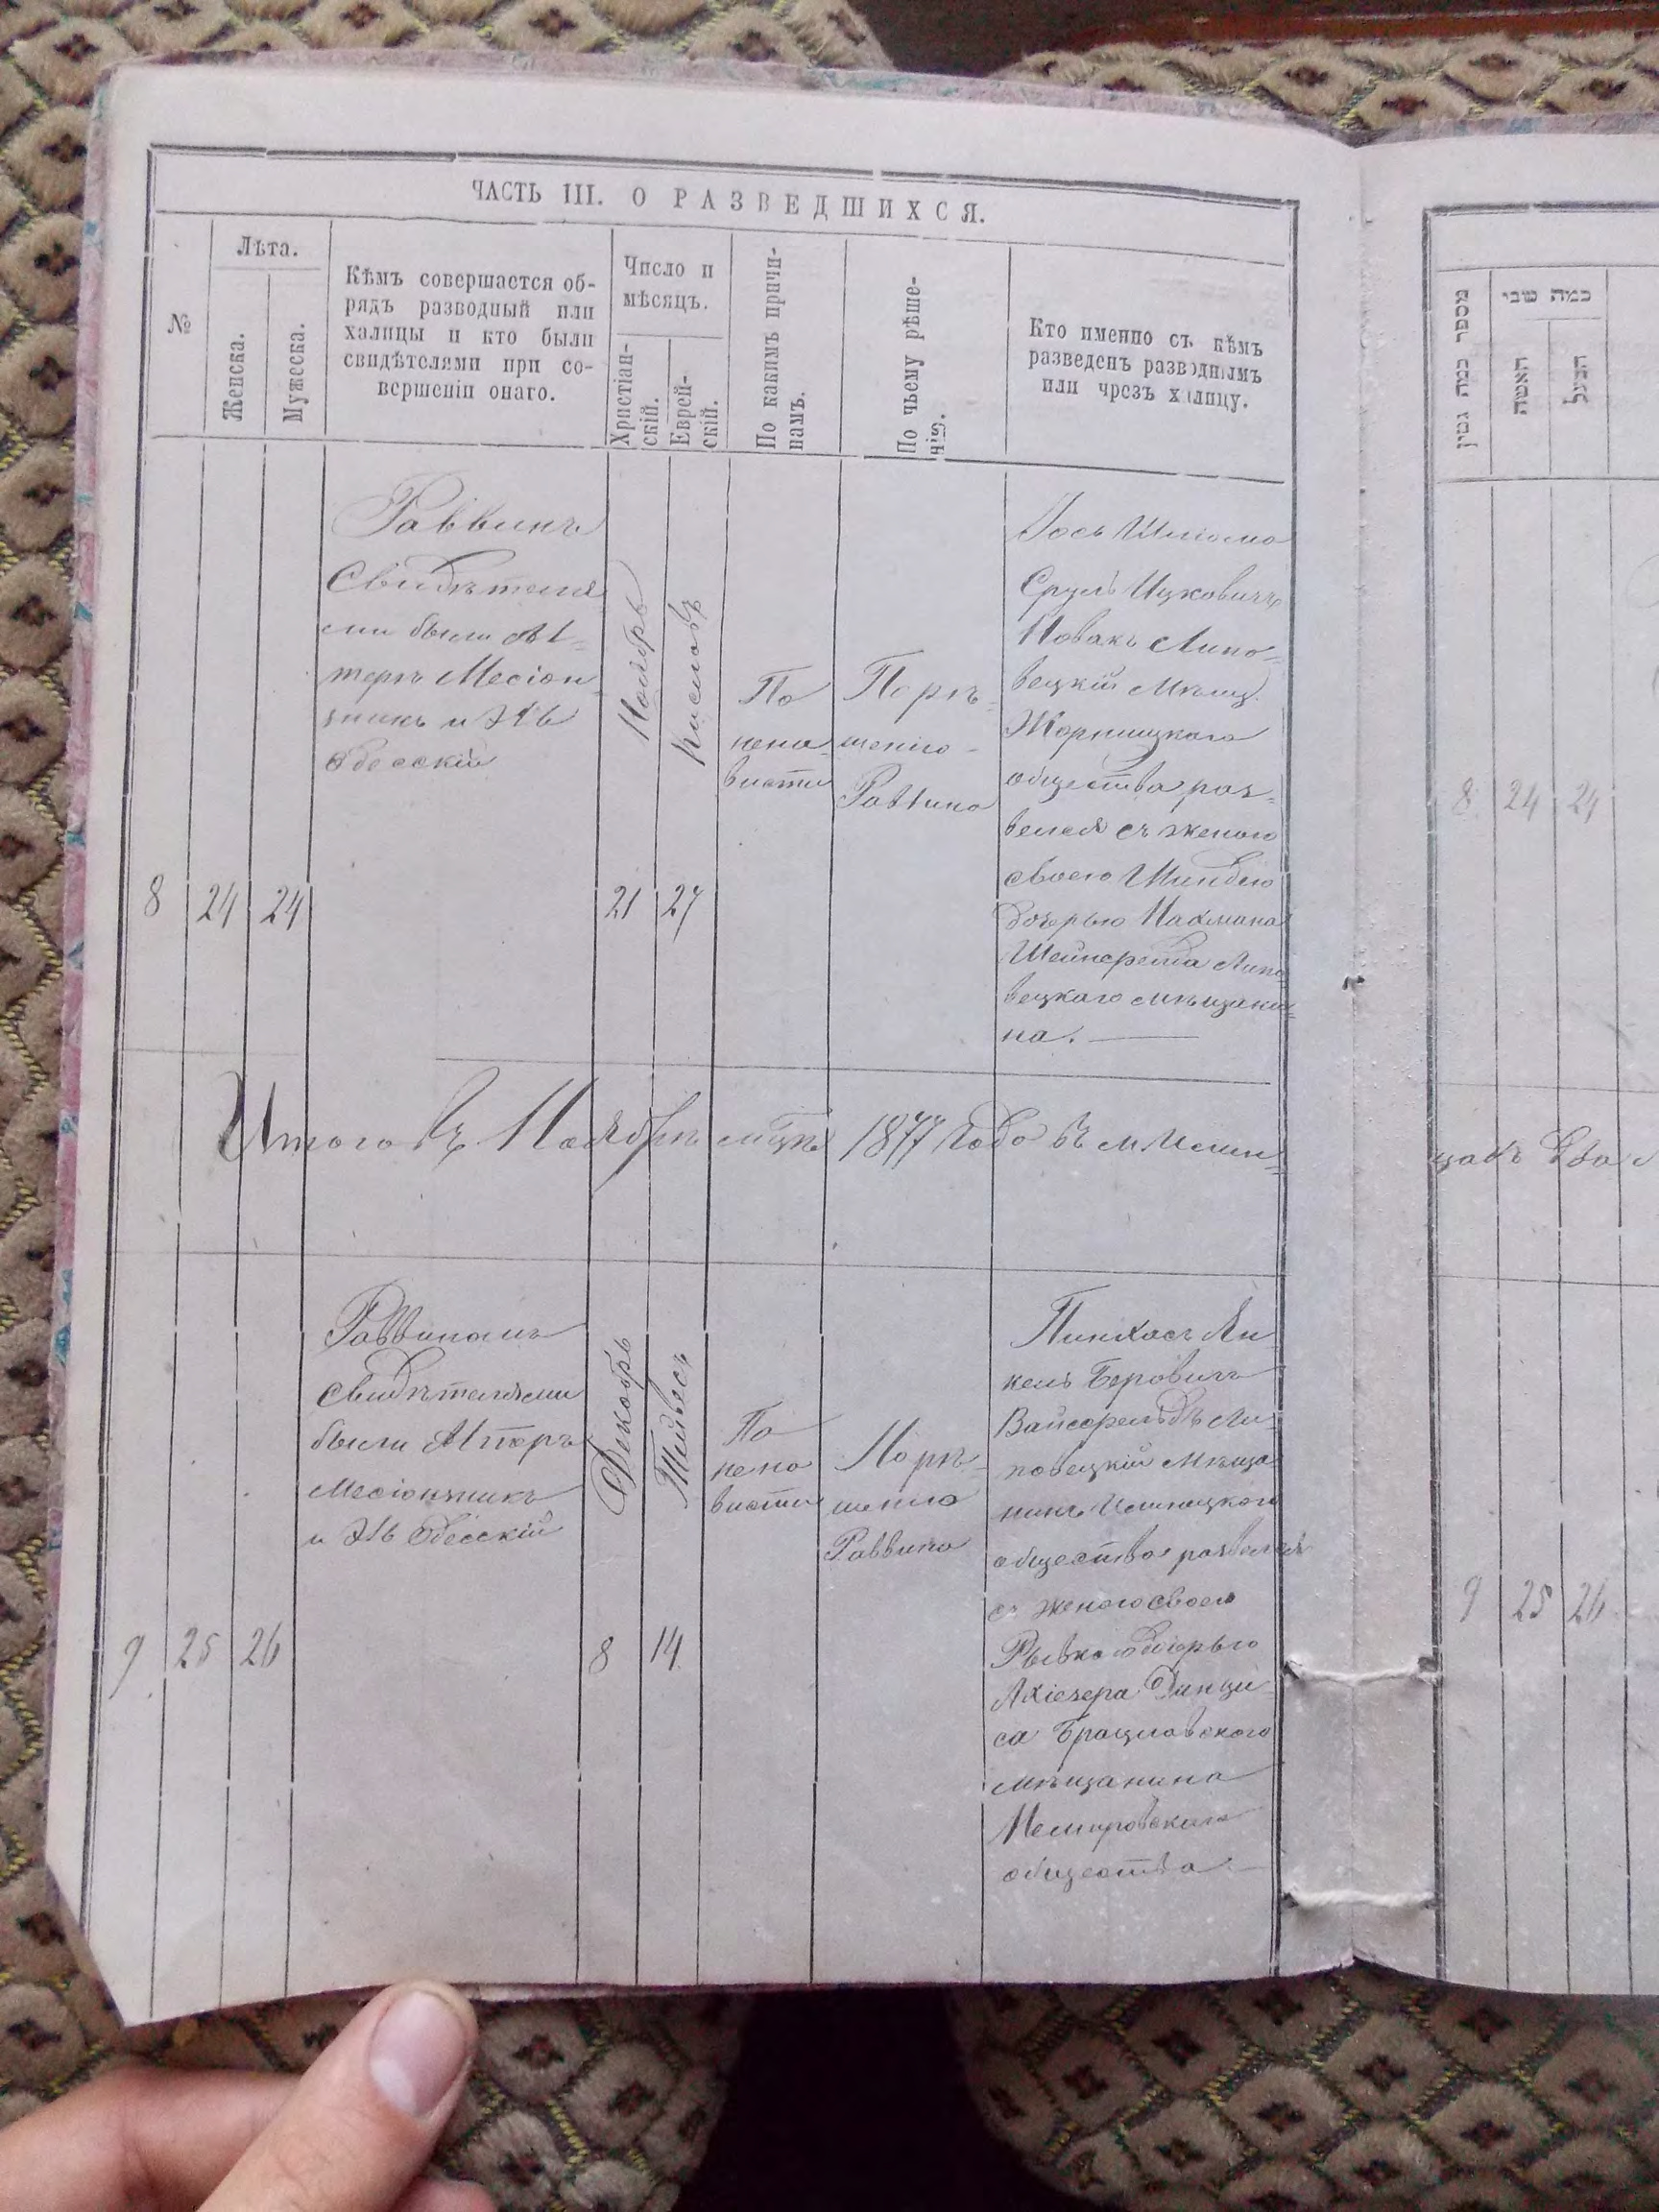 ЧАСТЬ III. О РАЗВЕДШИХСЯ.
№
Лѣта.
Женска.
Мужеска.
Кѣмъ совершается об-
рядъ разводный или
халицы и кто были
свидѣтелями при со-
вершеніи онаго.
Число и
мѣсяцъ.
Христіан-
скій.
Еврей-
скій.
По какимъ причи-
памъ.
По чьему рѣше-
нію.
Кто именно съ кѣмъ
разведенъ разводнымъ
или чрезъ халицу.
8
24
24
Раввинъ
Свидѣтеля
ми были Ал-
теръ Месіон
зникъ и Эль
Одесскій
Ноябрь
21
Кислов
27
По
нена
висти
Порѣ-
шенію
Раввина
Іось Шлиома
Сруль Ицковичъ
Новакъ Липо-
вецкій Мѣщ.
Жорнищкаго
общества раз-
велся съ женою
своею Миндею
дочерью Нахмана
Липо
вецкаго мѣщани-
на.
Итого въ Ноябрѣ мцѣ 1877 года въ м. Ильин-
9
25
26
Раввиномъ
свидѣтелями
были Алтеръ
Месіонзникъ
и Эль Одесскій
Декабрь
8
Тейвесъ
14
По
нена
висти
Порѣ-
шенію
Раввина
Пинхасъ Ян
кель Беровичъ
Вайсфельдъ Ли-
повецкій Мѣща
нинъ Ильинецкаго
общества развелся
съ женою своею
Рывкою дочерью
Ахіезера
са Брацлавскаго
мѣщанина
Немировскаго
общества
מספר כמה גטין
כמה שני
האשה
הבעל
8 24 24
цахъ два
9 25 26